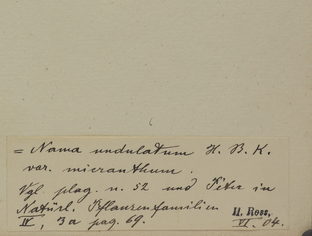 = Nama undulatum H. B. K.
var. micranthum.
Vgl. plag. n. 52 und Peter in
Natürl. Pflanzenfamilien
IV, 3a pag. 69.
H. Ross,
VI. 04.